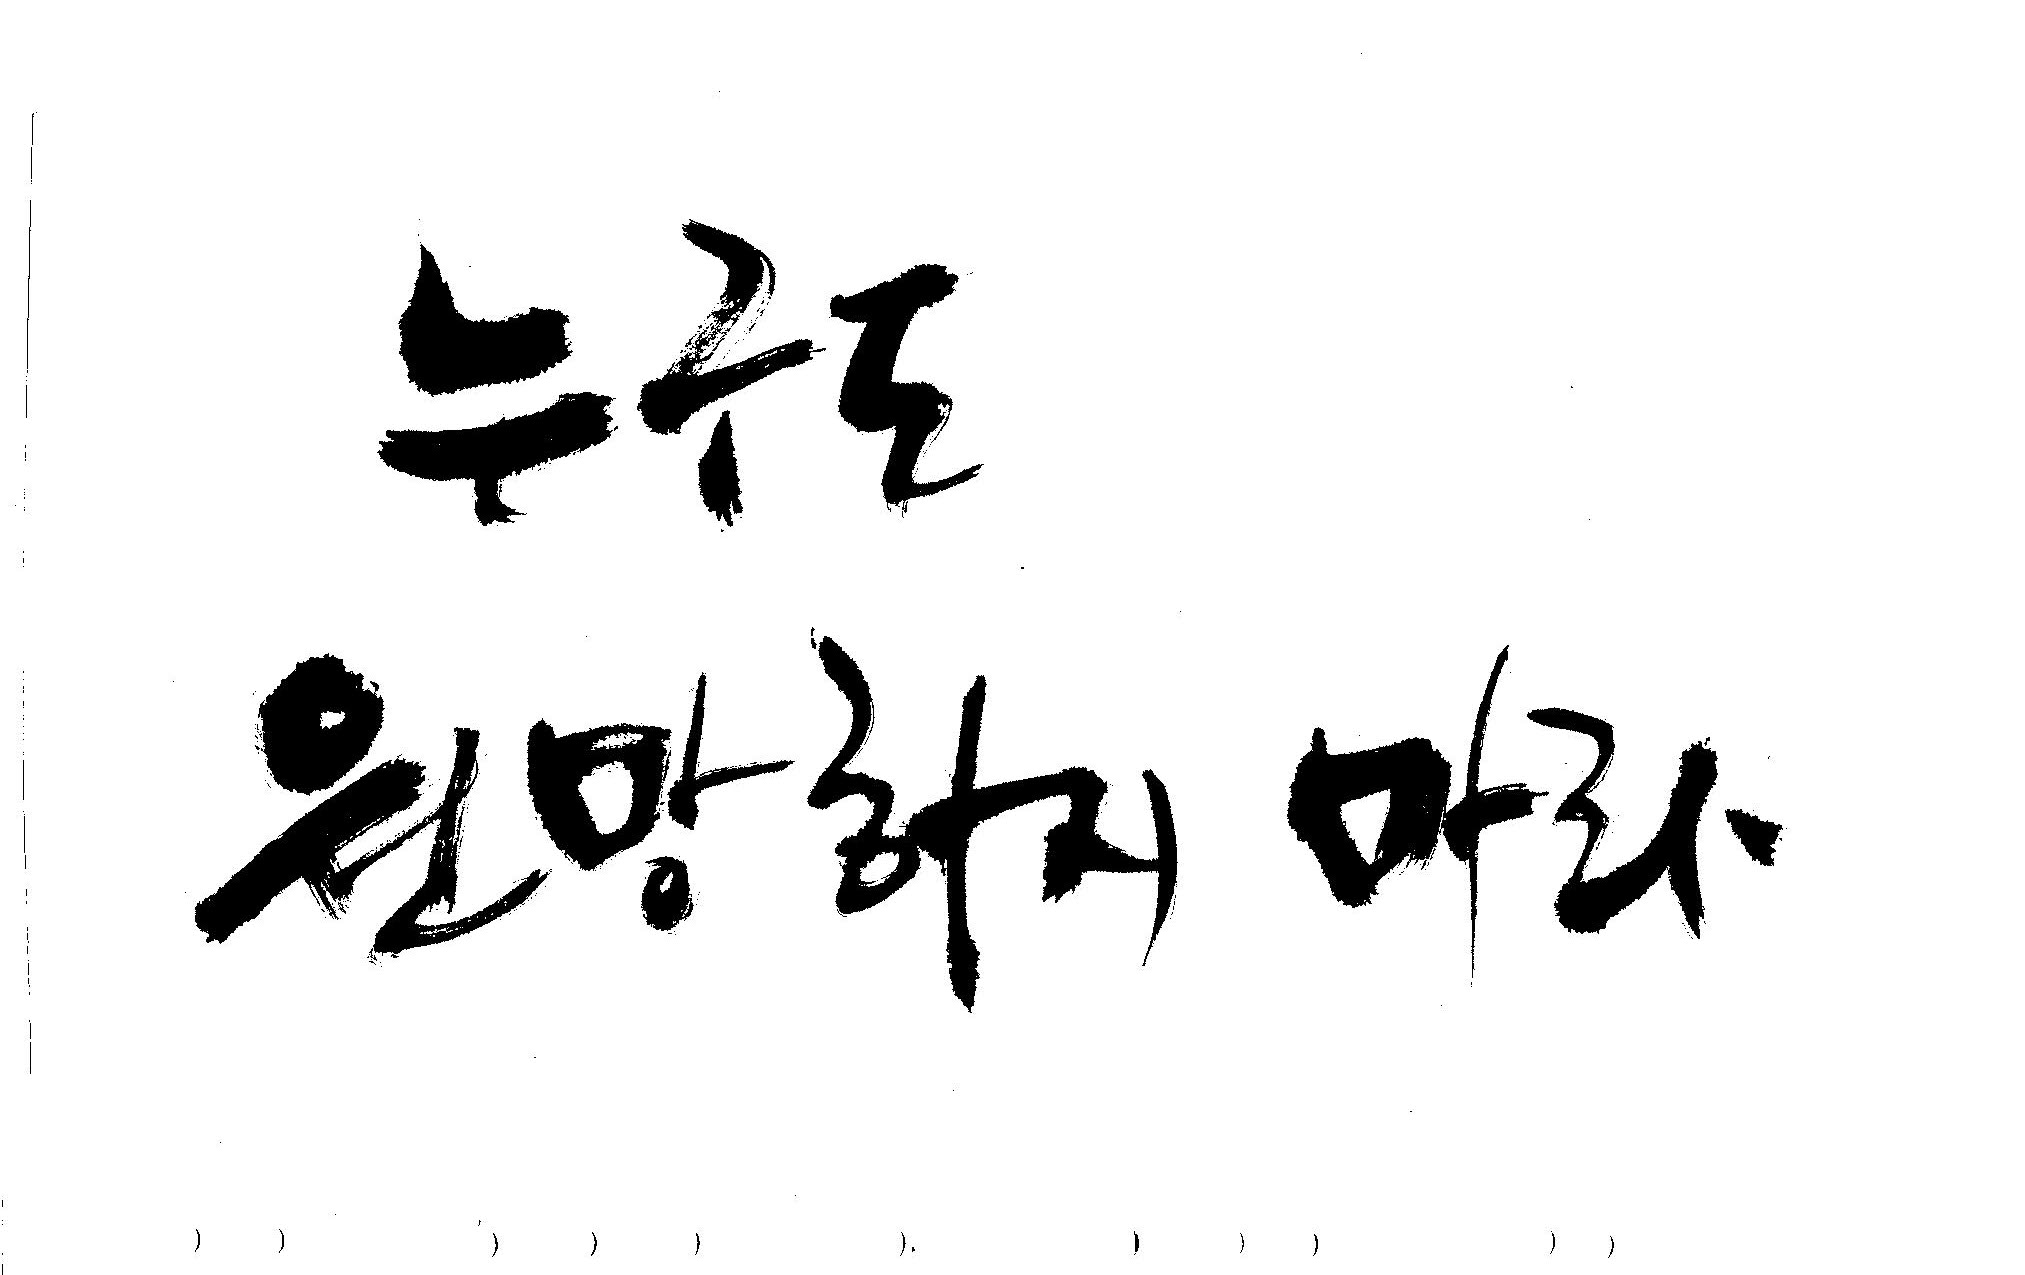 누구도
원망하지 마라